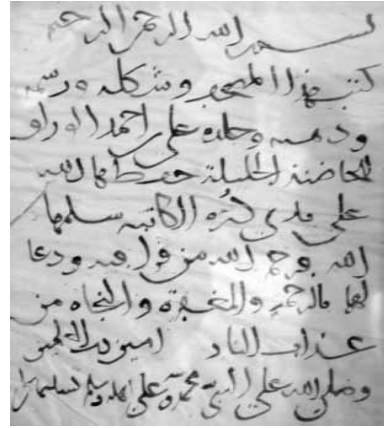 بسم الله الرحمن الرحيم
كتب هذا المصحف وشكله ورسمه
وذهبه وجلده علي بن احمد الوراق
للحاضنة الجليلة حفظها الله
على يدي درة الكاتبة سلمها
الله فرحم الله من قرا فيه ودعا
لهما بالرحمة والمغفرة والنجاة من
عذاب النار امين رب العلمين
وصلى الله على النبي محمد وعلى تسليما